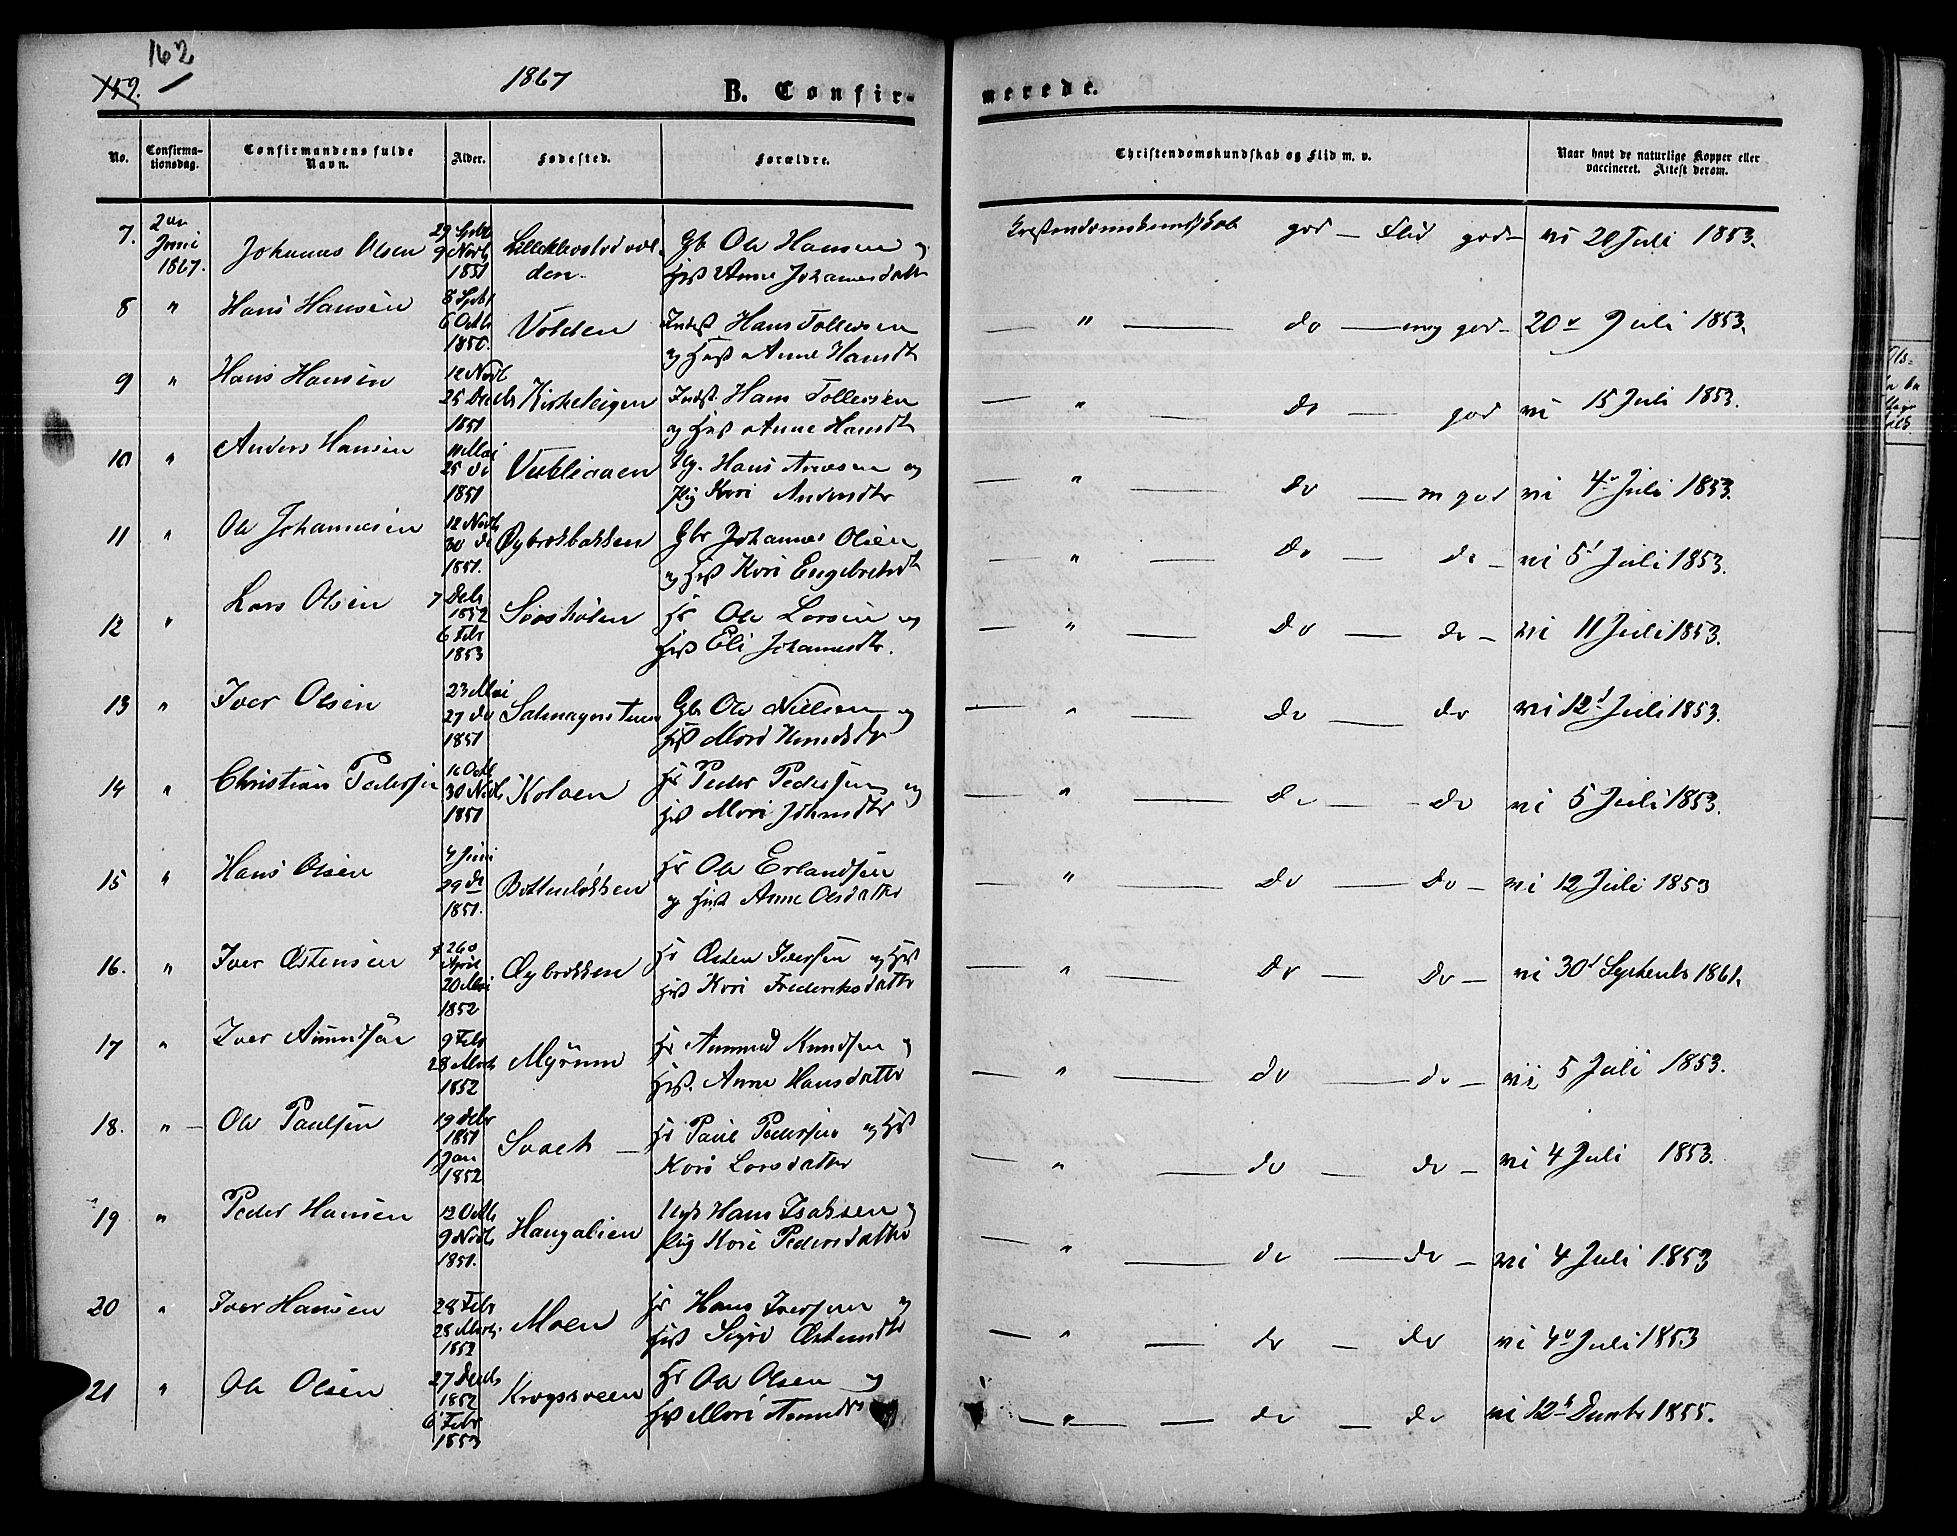 162
159.
1867
B. Confir-
merede.
No.
Confirma-
tionsdag.
Confirmandens fulde
Navn.
Alder.
Fødested.
Forældre.
Christendomskundskab og Flid m. v.
Naar havt de naturlige Kopper eller
vaccineret. Attest derom.
7. 2den Juni 1867. Johannes Olsen 29 Septb 9 Novb 1851 Gb Ole Hansen og Hust Anne Johannesdatter god — Flid god — vi 20 Juli 1853.
8 " Hans Hansen 8 Septb 6 Octb 1850. Volden Inderst Hans Tollefsen og Hust Anne Hansdt — " — do — meg god — 20 Juli 1853.
9 " Hans Hansen 12 Novb 25 Decb 1851 Kirkeleigen Inderst. Hans Tollefsen og Hust Anne Hansdt — " — do — god vi 15 Juli 1853.
10 " Anders Hansen 11 Mai 25 do 1851 Ug. Hans og Pig Kari Andersdtr — " — do — m god vi 4 Juli 1853.
11 " Ole Johannesen 12 Novb 30 do 1851. Øybrekbakken Gbr Johannes Olsen og Hust Kari Engebretsdt — " — do — do — vi 5 Juli 1853.
12 " Lars Olsen 7 Decb 1852 6 Febr 1853 Hr Ole Larsen og Hust Eli Johannesdtr. — " — do — do — vi 11 Juli 1853.
13 " Iver Olsen 23 Mai 27 do 1851 Gbr Ole Nielsen og Hust Mari — " — do — do vi 12 Juli 1853.
14 " Christian Pedersen 16 Octb 30 Novb 1851 Kolven Hr Peder Pedersen og Hust Mari Johansdtr — " — do — do vi 5 Juli 1853.
15 " Hans Olsen 4 Juni 29 do 1851. Hr Ole Erlandsen og Hust Anne Olsdatter — " — do — do — vi 12 Juli 1853
16. " Iver Østensen 26 April 20 Mai 1852 Øybrekken Hr Østen Iversen og Hust Hust Kari Frederiksdatter — " — do — do — vi 30 Septembr 1861.
17 " Iver Amundsen 9 Febr 28 Marts 1852 Myrum Hr Amund Knudsen og Hust. Anne Hansdatter — " — do — do — vi 5 Juli 1853.
18. " — Ole Paulsen 19 Decbr 1851 1 Jan 1852 Hr Paul Pedersen og Hust Kari Larsdatter — " — do — do — vi 4 Juli 1853.
19 " Peder Hansen 12 Octb 9 Novb 1851. Haugalien Ungk Hans Isaksen og Pig Kari Pedersdatter — " — do — do — vi 4 Juli 1853
20 " Iver Hansen 28 Febr 28 Marts 1852 Moen Hr Hans Iversen og Hust Sigri Østensdtr — " — do — do vi 4 Juli 1853
21 " Ole Olsen 27 Decb 1852 6 Febr 1853 Krogsveen Hr Ole Olsen og Hust Mari — " — do — do vi 12 Decmbr 1855.